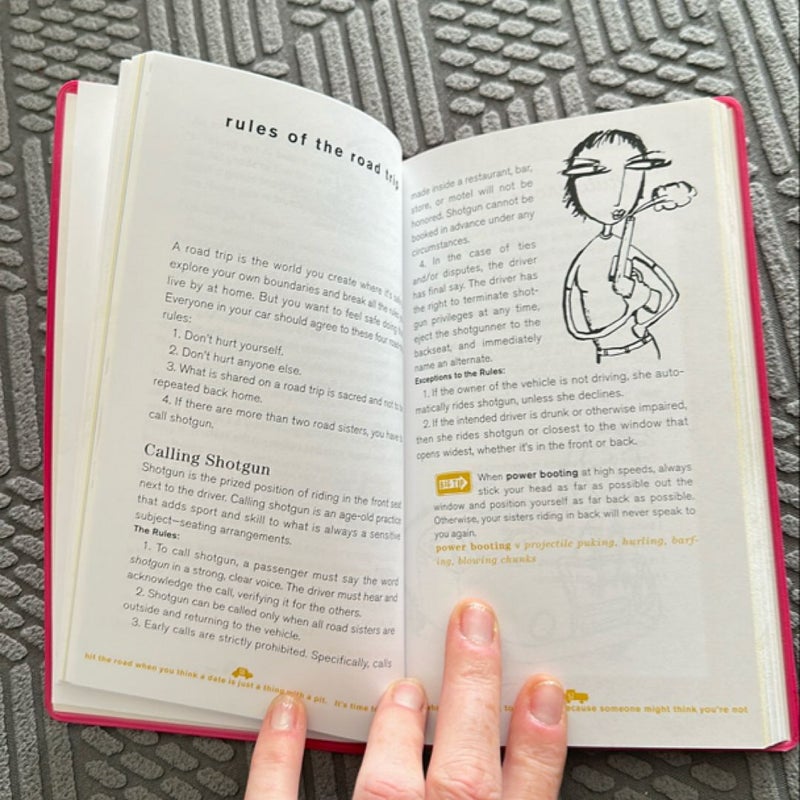 rules of the road trip
A road trip is the world you create where it's
explore your own boundaries and break all the rules
live by at home. But you want to feel safe doing
Everyone in your car should agree to these four
rules:
1. Don't hurt yourself.
2. Don't hurt anyone else.
3. What is shared on a road trip is sacred and not to be
repeated back home.
4. If there are more than two road sisters, you have to
call shotgun.
Calling Shotgun
Shotgun is the prized position of riding in the front seat
next to the driver. Calling shotgun is an age-old practice
that adds sport and skill to what is always a sensitive
subject—seating arrangements.
The Rules:
1. To call shotgun, a passenger must say the word
shotgun in a strong, clear voice. The driver must hear and
acknowledge the call, verifying it for the others.
2. Shotgun can be called only when all road sisters are
outside and returning to the vehicle.
3. Early calls are strictly prohibited. Specifically, calls
hit the road when you think a date is just a thing with a pit. It's time
made inside a restaurant, bar,
store, or motel will not be
honored. Shotgun cannot be
booked in advance under any
circumstances.
4. In the case of ties
and/or disputes, the driver
has final say. The driver has
the right to terminate shot-
gun privileges at any time,
eject the shotgunner to the
backseat, and immediately
name an alternate.
Exceptions to the Rules:
1. If the owner of the vehicle is not driving, she auto-
matically rides shotgun, unless she declines.
2. If the intended driver is drunk or otherwise impaired,
then she rides shotgun or closest to the window that
opens widest, whether it's in the front or back.
When power booting at high speeds, always
stick your head as far as possible out the
window and position yourself as far back as possible.
Otherwise, your sisters riding in back will never speak to
you again.
power booting v projectile puking, hurling, barf-
ing, blowing chunks
because someone might think you're not